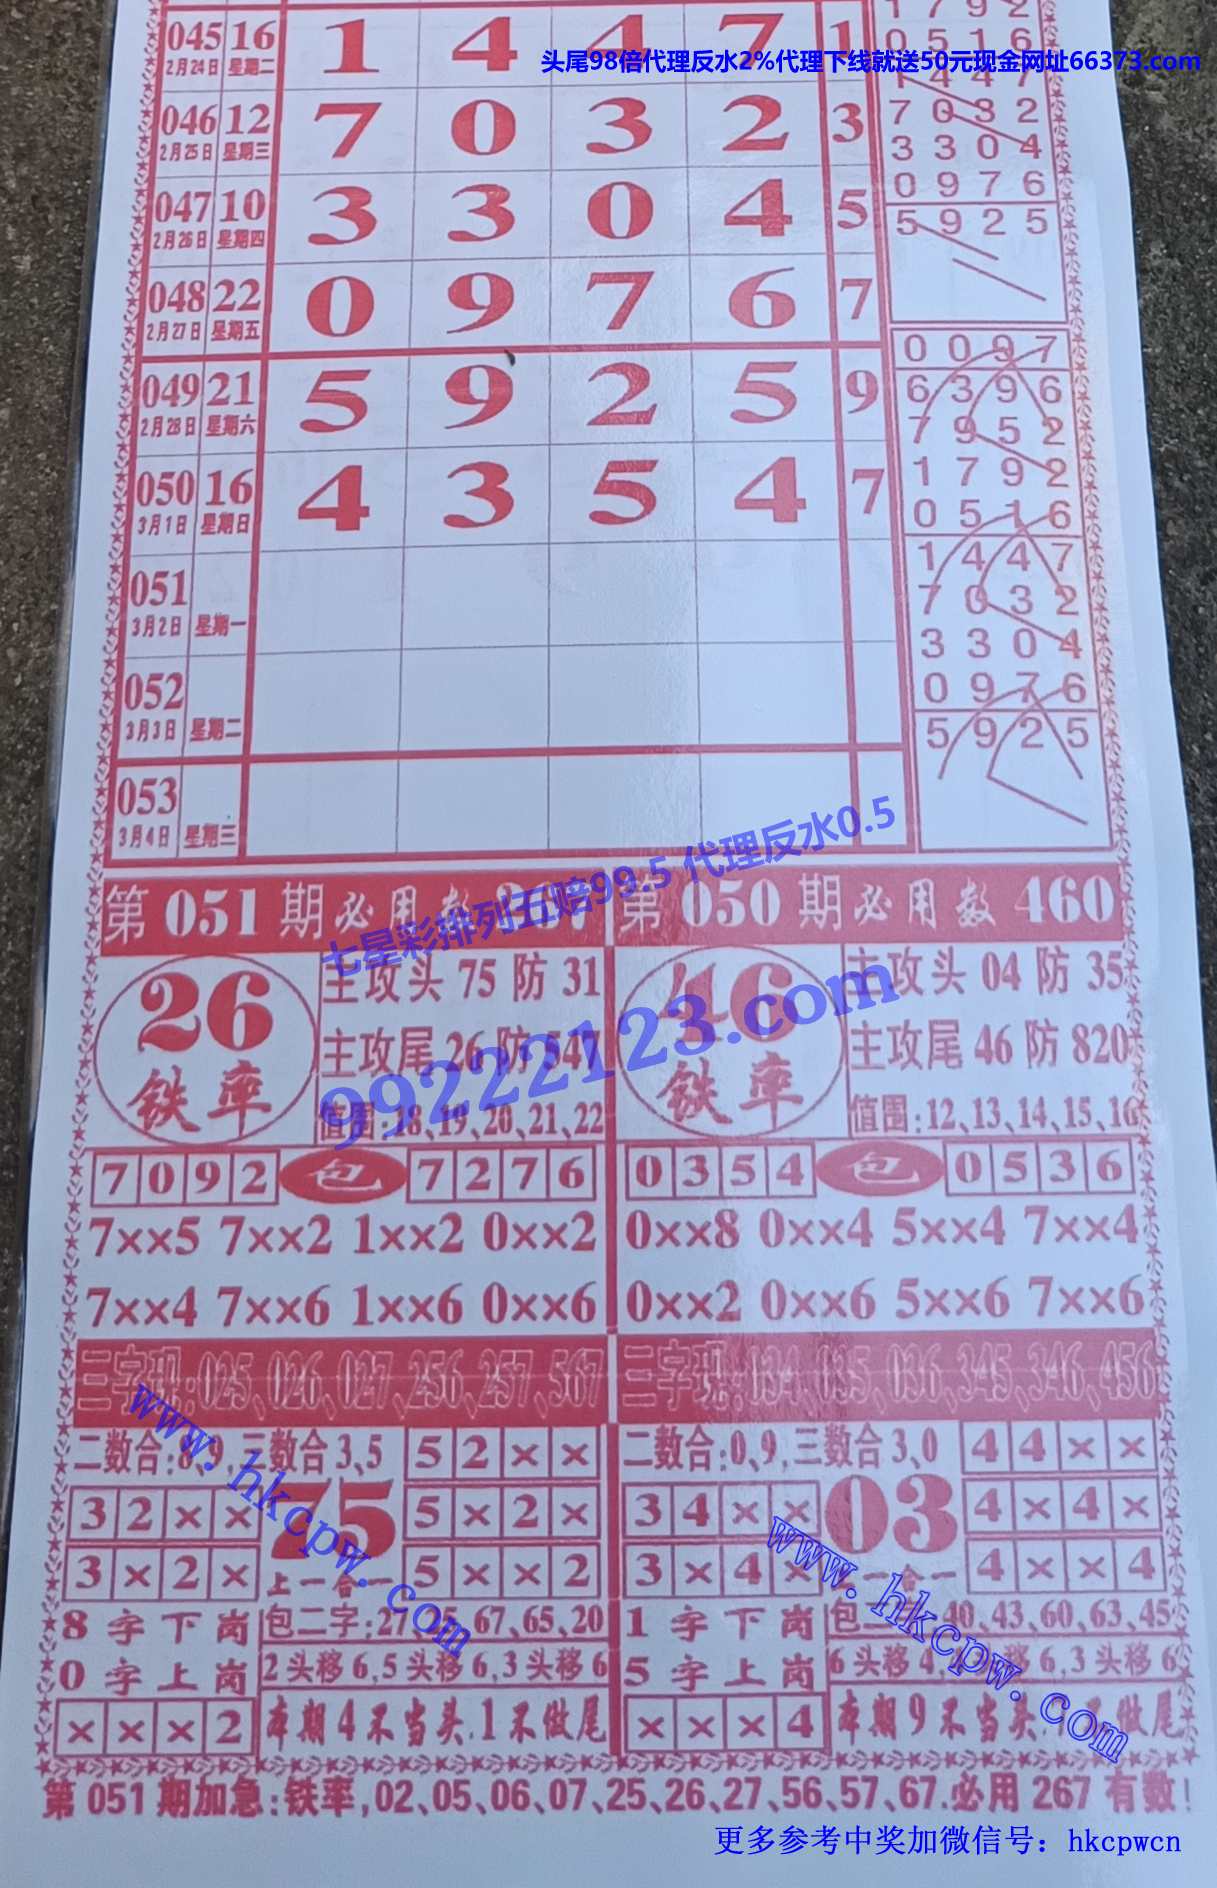 1 7 9 2
045 16 1 4 4 7 1 0 5 1 6
2月24日 星期二
头尾98倍代理反水2%代理下线就送50元现金网址66373.com
1 4 4 7
046 12 7 0 3 2 3 7 0 3 2
2月25日 星期三
3 3 0 4
047 10 3 3 0 4 5 0 9 7 6
2月26日 星期四
5 9 2 5
048 22 0 9 7 6 7
2月27日 星期五
0 0 9 7
049 21 5 9 2 5 9 6 3 9 6
2月28日 星期六
7 9 5 2
050 16 4 3 5 4 7 1 7 9 2
3月1日 星期日
0 5 1 6
1 4 4 7
051
7 0 3 2
3月2日 星期一
3 3 0 4
052 0 9 7 6
3月3日 星期二
5 9 2 5
053
3月4日 星期三
七星彩排列五赔99.5 代理反水0.5
第051期必用数
第050期必用数460
26 铁率
主攻头 75 防 31
主攻尾 26 防 547
值围:18、19、20、21、22
46 铁率
主攻头 04 防 35
主攻尾 46 防 820
值围:12、13、14、15、16
99222123.com
7 0 9 2 包 7 2 7 6
0 3 5 4 包 0 5 3 6
7××5 7××2 1××2 0××2
0××8 0××4 5××4 7××4
7××4 7××6 1××6 0××6
0××2 0××6 5××6 7××6
三字现:025、026、027、256、257、567
三字现:034、035、036、345、346、456
二数合:8、9,三数合3、5
5 2 × ×
3 2 × ×
75
5 × 2 ×
3 × 2 ×
上一合一
5 × × 2
二数合:0、9,三数合3、0
4 4 × ×
3 4 × ×
03
4 × 4 ×
3 × 4 ×
一合一
4 × × 4
www.hkcpw.com
www.hkcpw.com
8字下岗
包二字:27、25、67、65、20
0字上岗
2头移6,5头移6,3头移6
× × × 2
本期4不当头,1不做尾
1字下岗
包二字:40、43、60、63、45
5字上岗
6头移4, 移6,3头移6
× × × 4
本期9不当头, 不做尾
第051期加急:铁率,02、05、06、07、25、26、27、56、57、67.必用267有数!
更多参考中奖加微信号：hkcpwcn